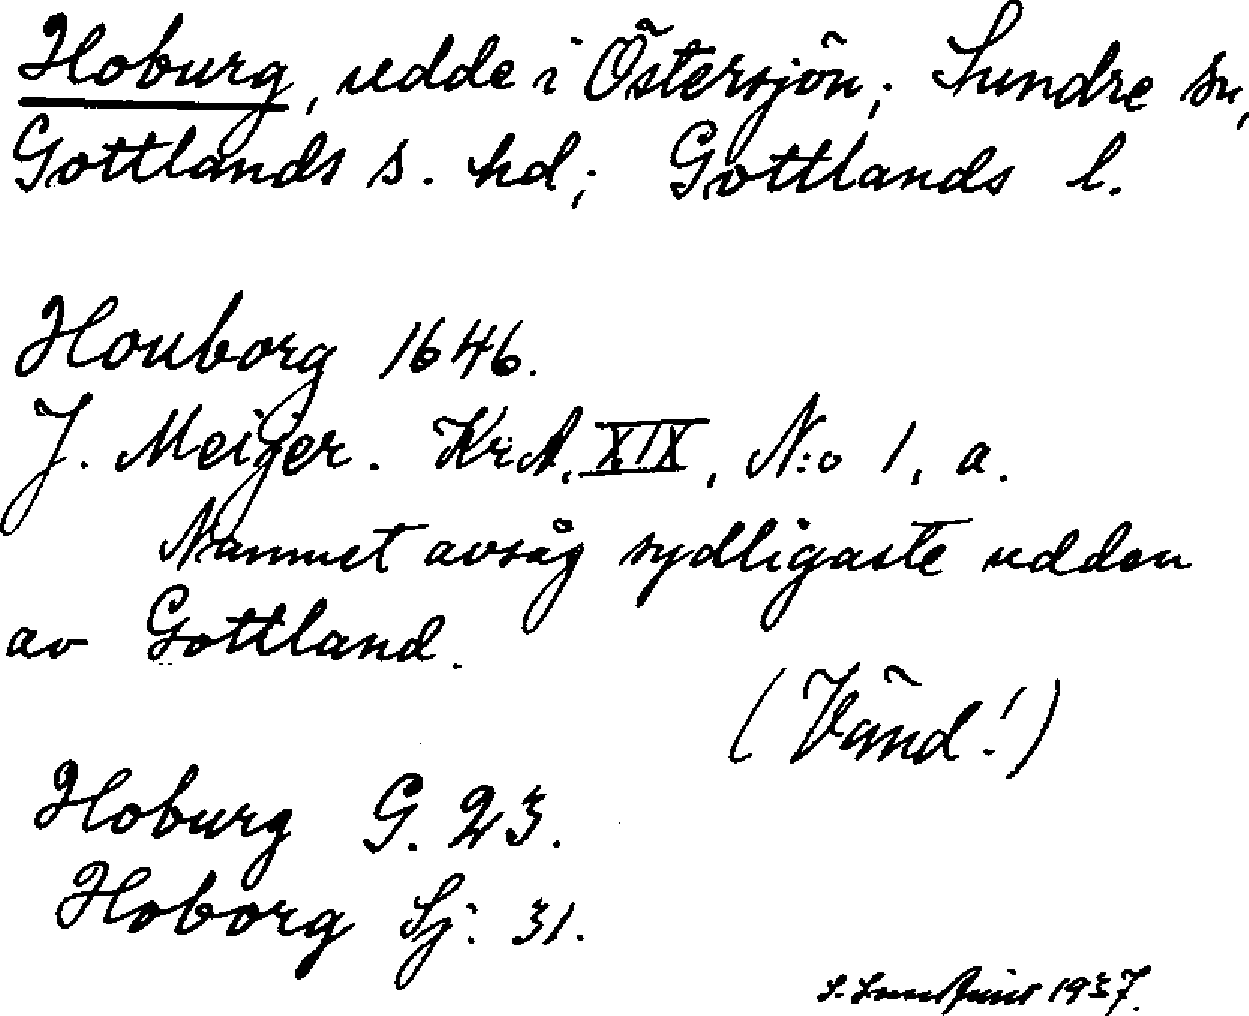 Hoburg, udde i Östersjön; Sundre sn,
Gottlands s. hd; Gottlands l.
Houborg 1646.
J. Meijer. KrA, XIX, N:o 1, a.
Namnet avsåg sydligaste udden
av Gottland.
(Vänd!)
Hoburg G. 23.
Hoborg Sj. 31.
1937.